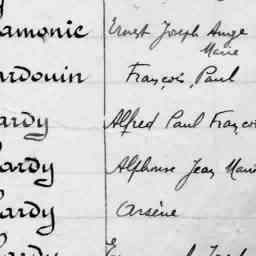 amonic Ernst Joseph Ange
Marie
ardouin François, Paul
ardy Alfred Paul Franço
ardy Alphonse Jean Mari
ardy Arsène
ardy